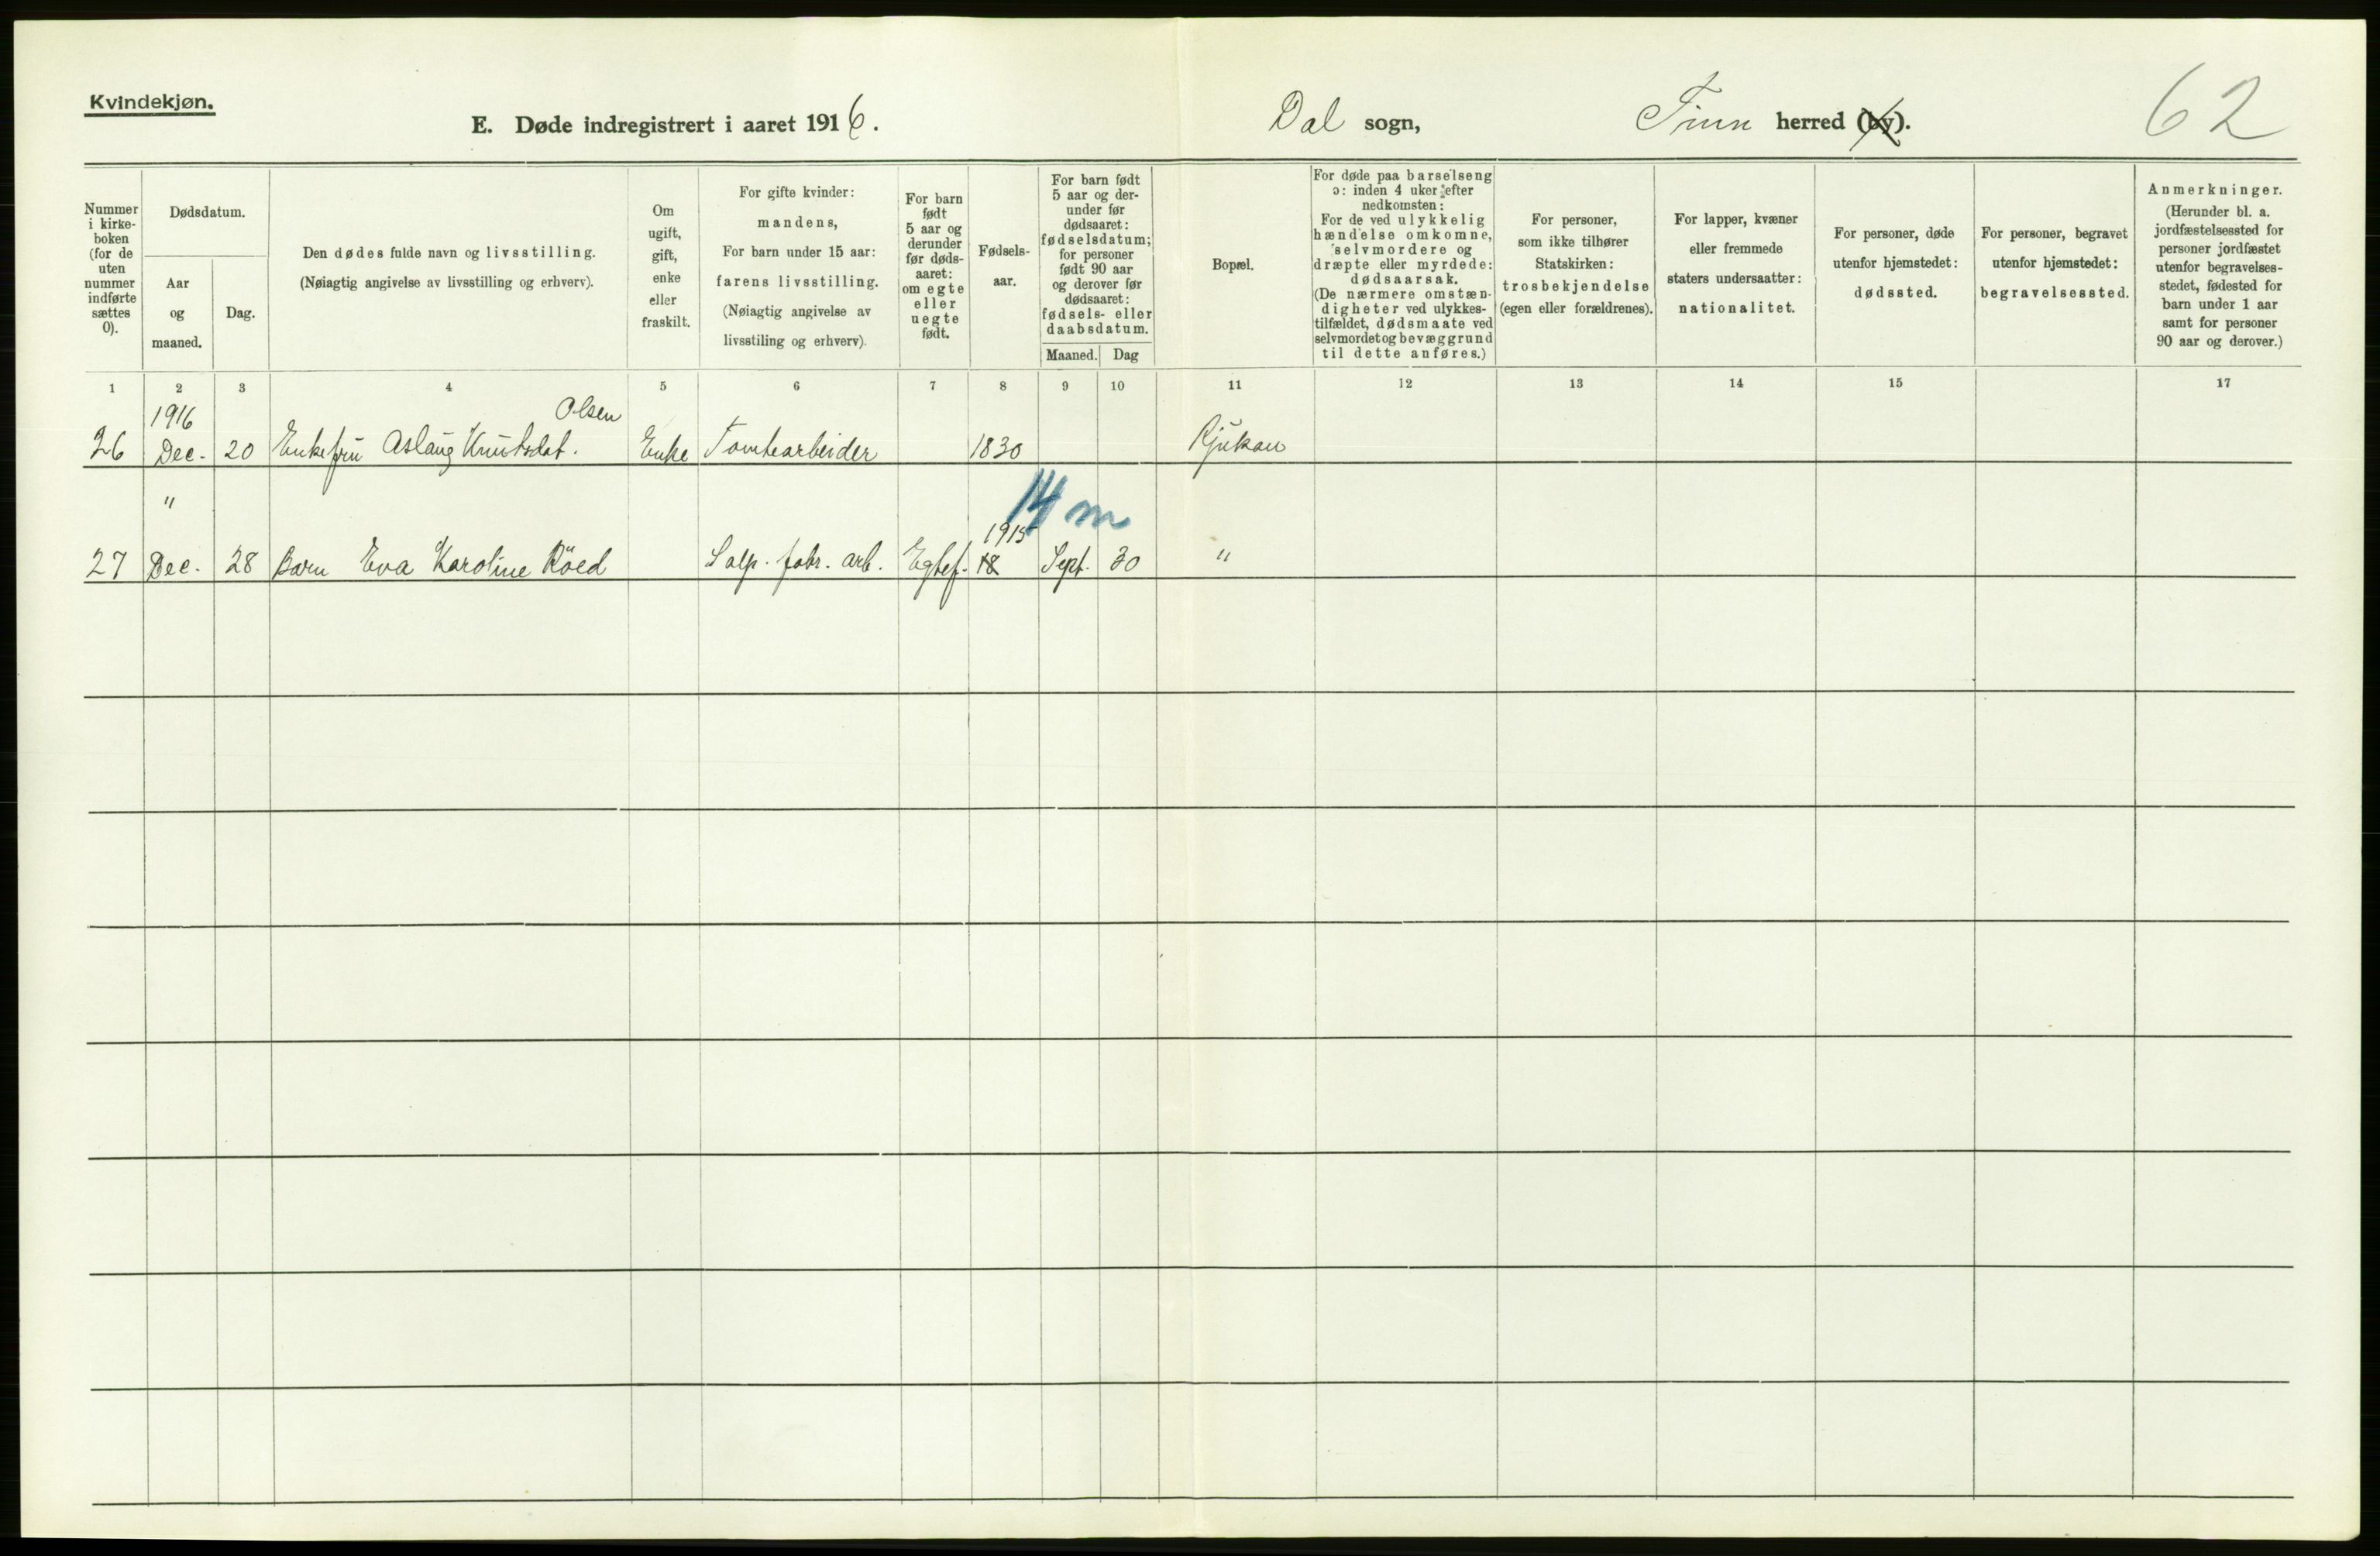 Kvindekjøn.
E. Døde indregistrert i aaret 1916.
Dal sogn,
Tinn herred (by).
62
Nummer
i kirke-
boken
(for de
uten
nummer
indførte
sættes
0).
Dødsdatum.
Aar
og
maaned.
Dag.
Den dødes fulde navn og livsstilling.
(Nøiagtig angivelse av livsstilling og erhverv).
Om
ugift,
gift,
enke
eller
fraskilt.
For gifte kvinder:
mandens,
For barn under 15 aar:
farens livsstilling.
(Nøiagtig angivelse av
livsstiling og erhverv).
For barn
født
5 aar og
derunder
før døds-
aaret:
om egte
eller
uegte
født.
Fødsels-
aar.
For barn født
5 aar og der-
under før
dødsaaret:
fødselsdatum;
for personer
født 90 aar
og derover før
dødsaaret:
fødsels- eller
daabsdatum.
Maaned.
Dag
Bopæl.
For døde paa barselseng
ɔ: inden 4 uker efter
nedkomsten:
For de ved ulykkelig
hændelse omkomne,
selvmordere og
dræpte eller myrdede:
dødsaarsak.
(De nærmere omstæn-
digheter ved ulykkes-
tilfældet, dødsmaate ved
selvmordet og bevæggrund
til dette anføres.)
For personer,
som ikke tilhører
Statskirken:
trosbekjendelse
(egen eller forældrenes).
For lapper, kvæner
eller fremmede
staters undersaatter:
nationalitet.
For personer, døde
utenfor hjemstedet:
dødssted.
For personer, begravet
utenfor hjemstedet:
begravelsessted.
Anmerkninger.
(Herunder bl. a.
jordfæstelsessted for
personer jordfæstet
utenfor begravelses-
stedet, fødested for
barn under 1 aar
samt for personer
90 aar og derover.)
1 2 3 4 5 6 7 8 9 10 11 12 13 14 15 17
1916
Olsen
26 Dec. 20 Enkefru Aslaug Knutsdat. Enke Tomtearbeider 1830 Rjukan
"
14 m
1915
27 Dec. 28 Barn Eva Karoline Röed Salp. fabr. arb. Egtef. 18 Sept. 30 "